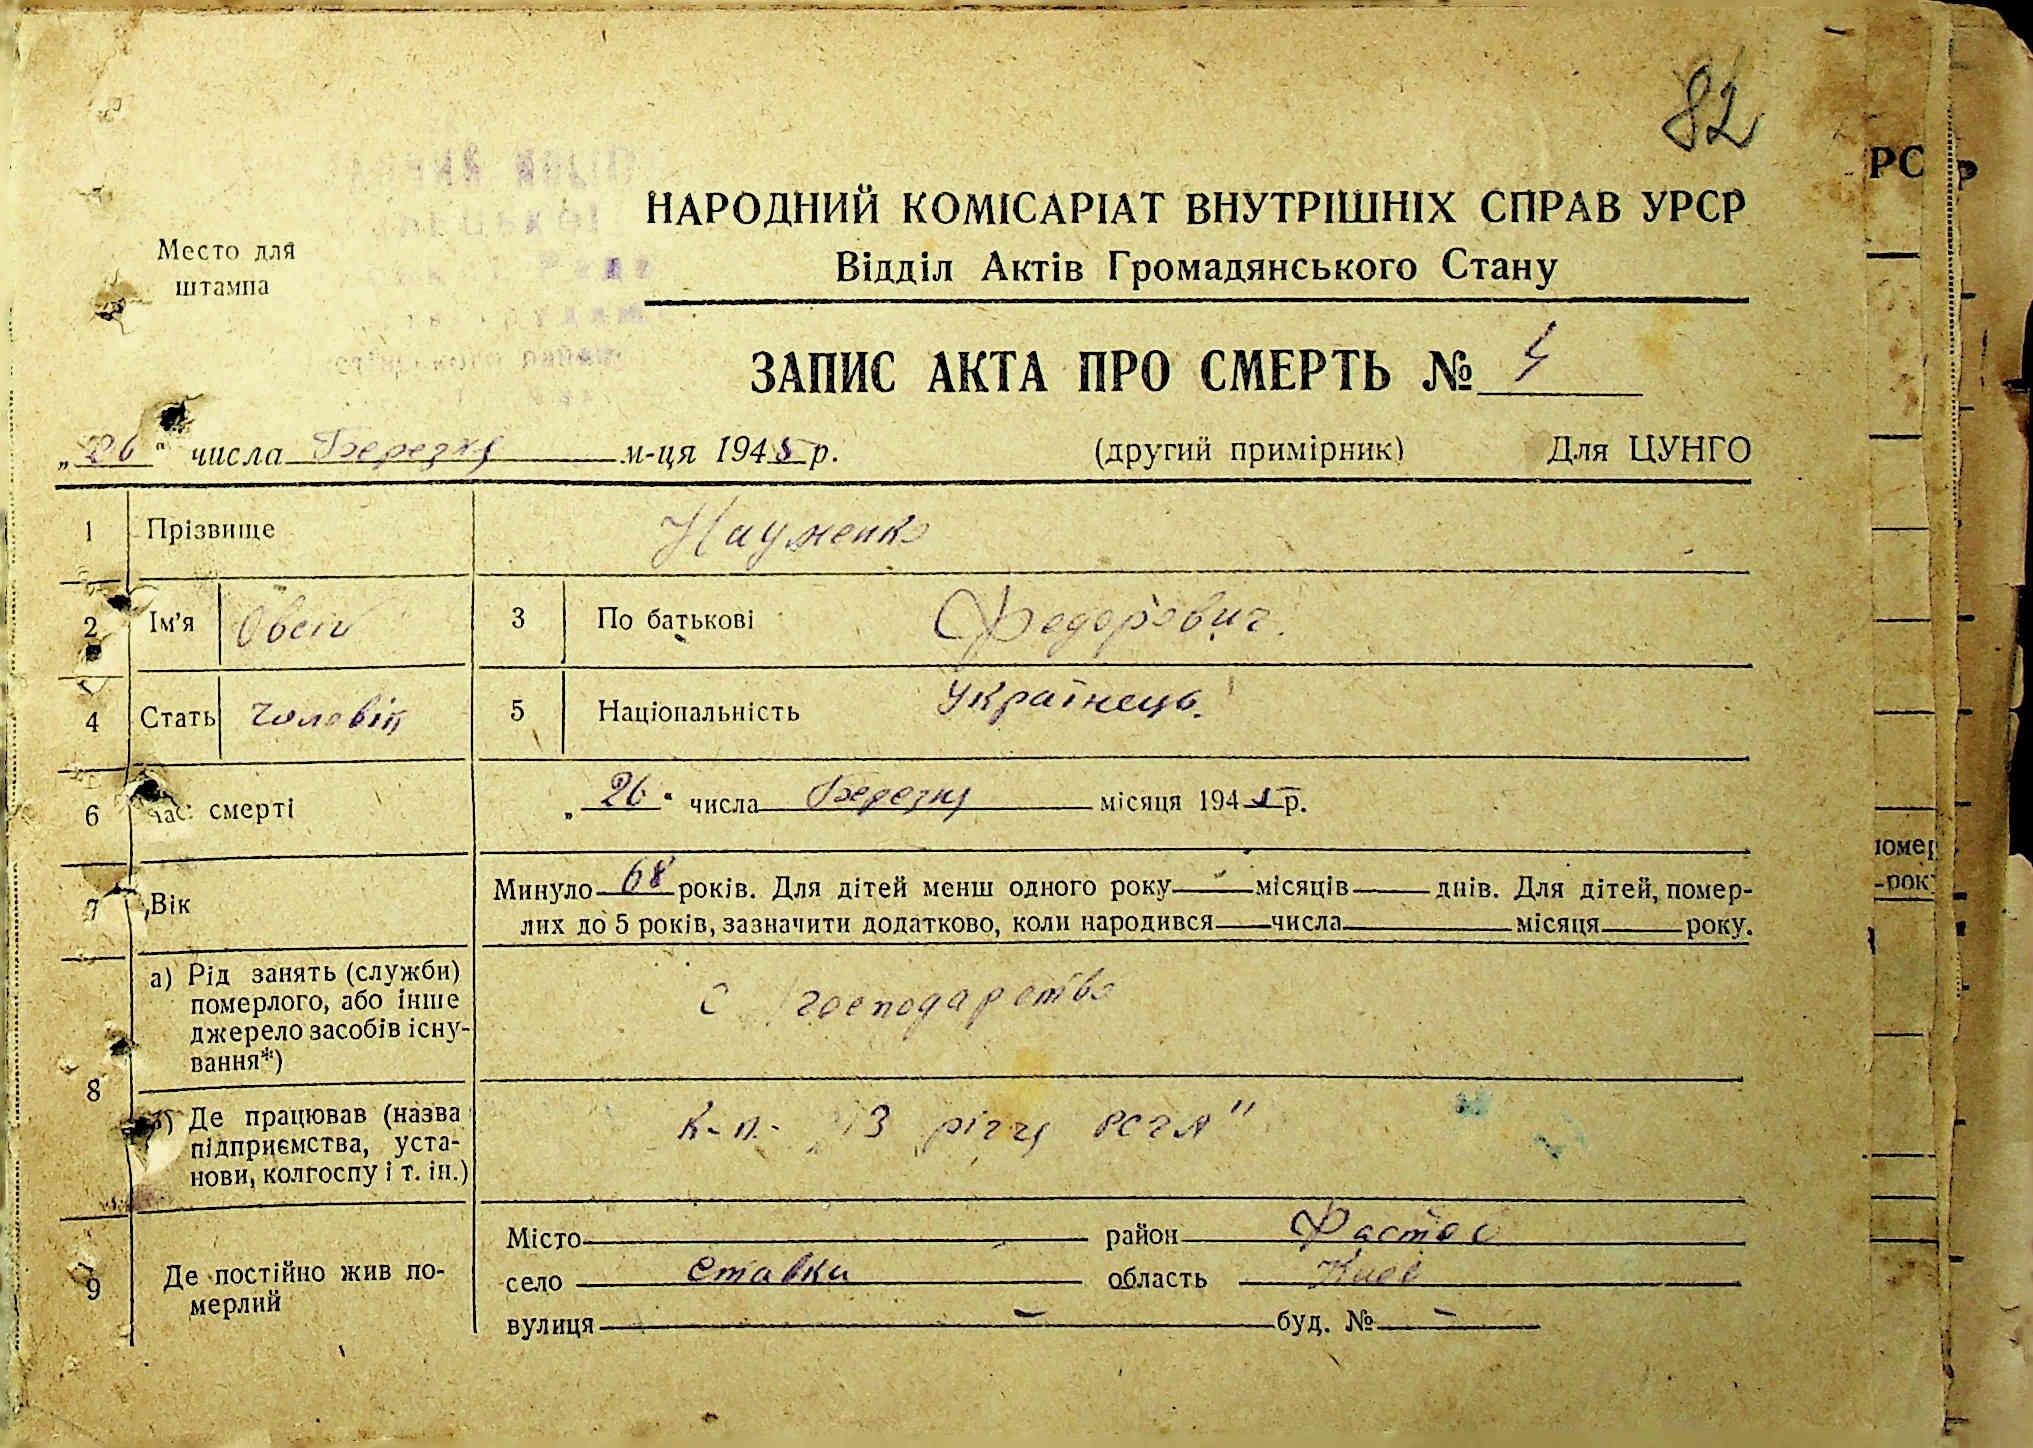 82
НАРОДНИЙ КОМІСАРІАТ ВНУТРІШНІХ СПРАВ УРСР
Відділ Актів Громадянського Стану
Место для
штампа
ЗАПИС АКТА ПРО СМЕРТЬ №
„26“ числа Березня м-ця 1945 р. (другий примірник) Для ЦУНГО
1 Прізвище Науменко
2 Ім'я Овсій 3 По батькові Федорович.
4 Стать чоловік 5 Національність Українець.
6 час смерті „26“ числа Березня місяця 1945 р.
7 Вік Минуло 68 років. Для дітей менш одного року місяців днів. Для дітей, помер-
лих до 5 років, зазначити додатково, коли народився числа місяця року.
8 а) Рід занять (служби)
померлого, або інше
джерело засобів існу-
вання*)
с господарство
Де працював (назва
підприємства, уста-
нови, колгоспу і т. ін.)
к-п. 13 річчя РСЧА"
9 Де постійно жив по-
мерлий
Місто район Фастов
село Ставки область Киев
вулиця – буд. № –
РС
Р
помер
-рок